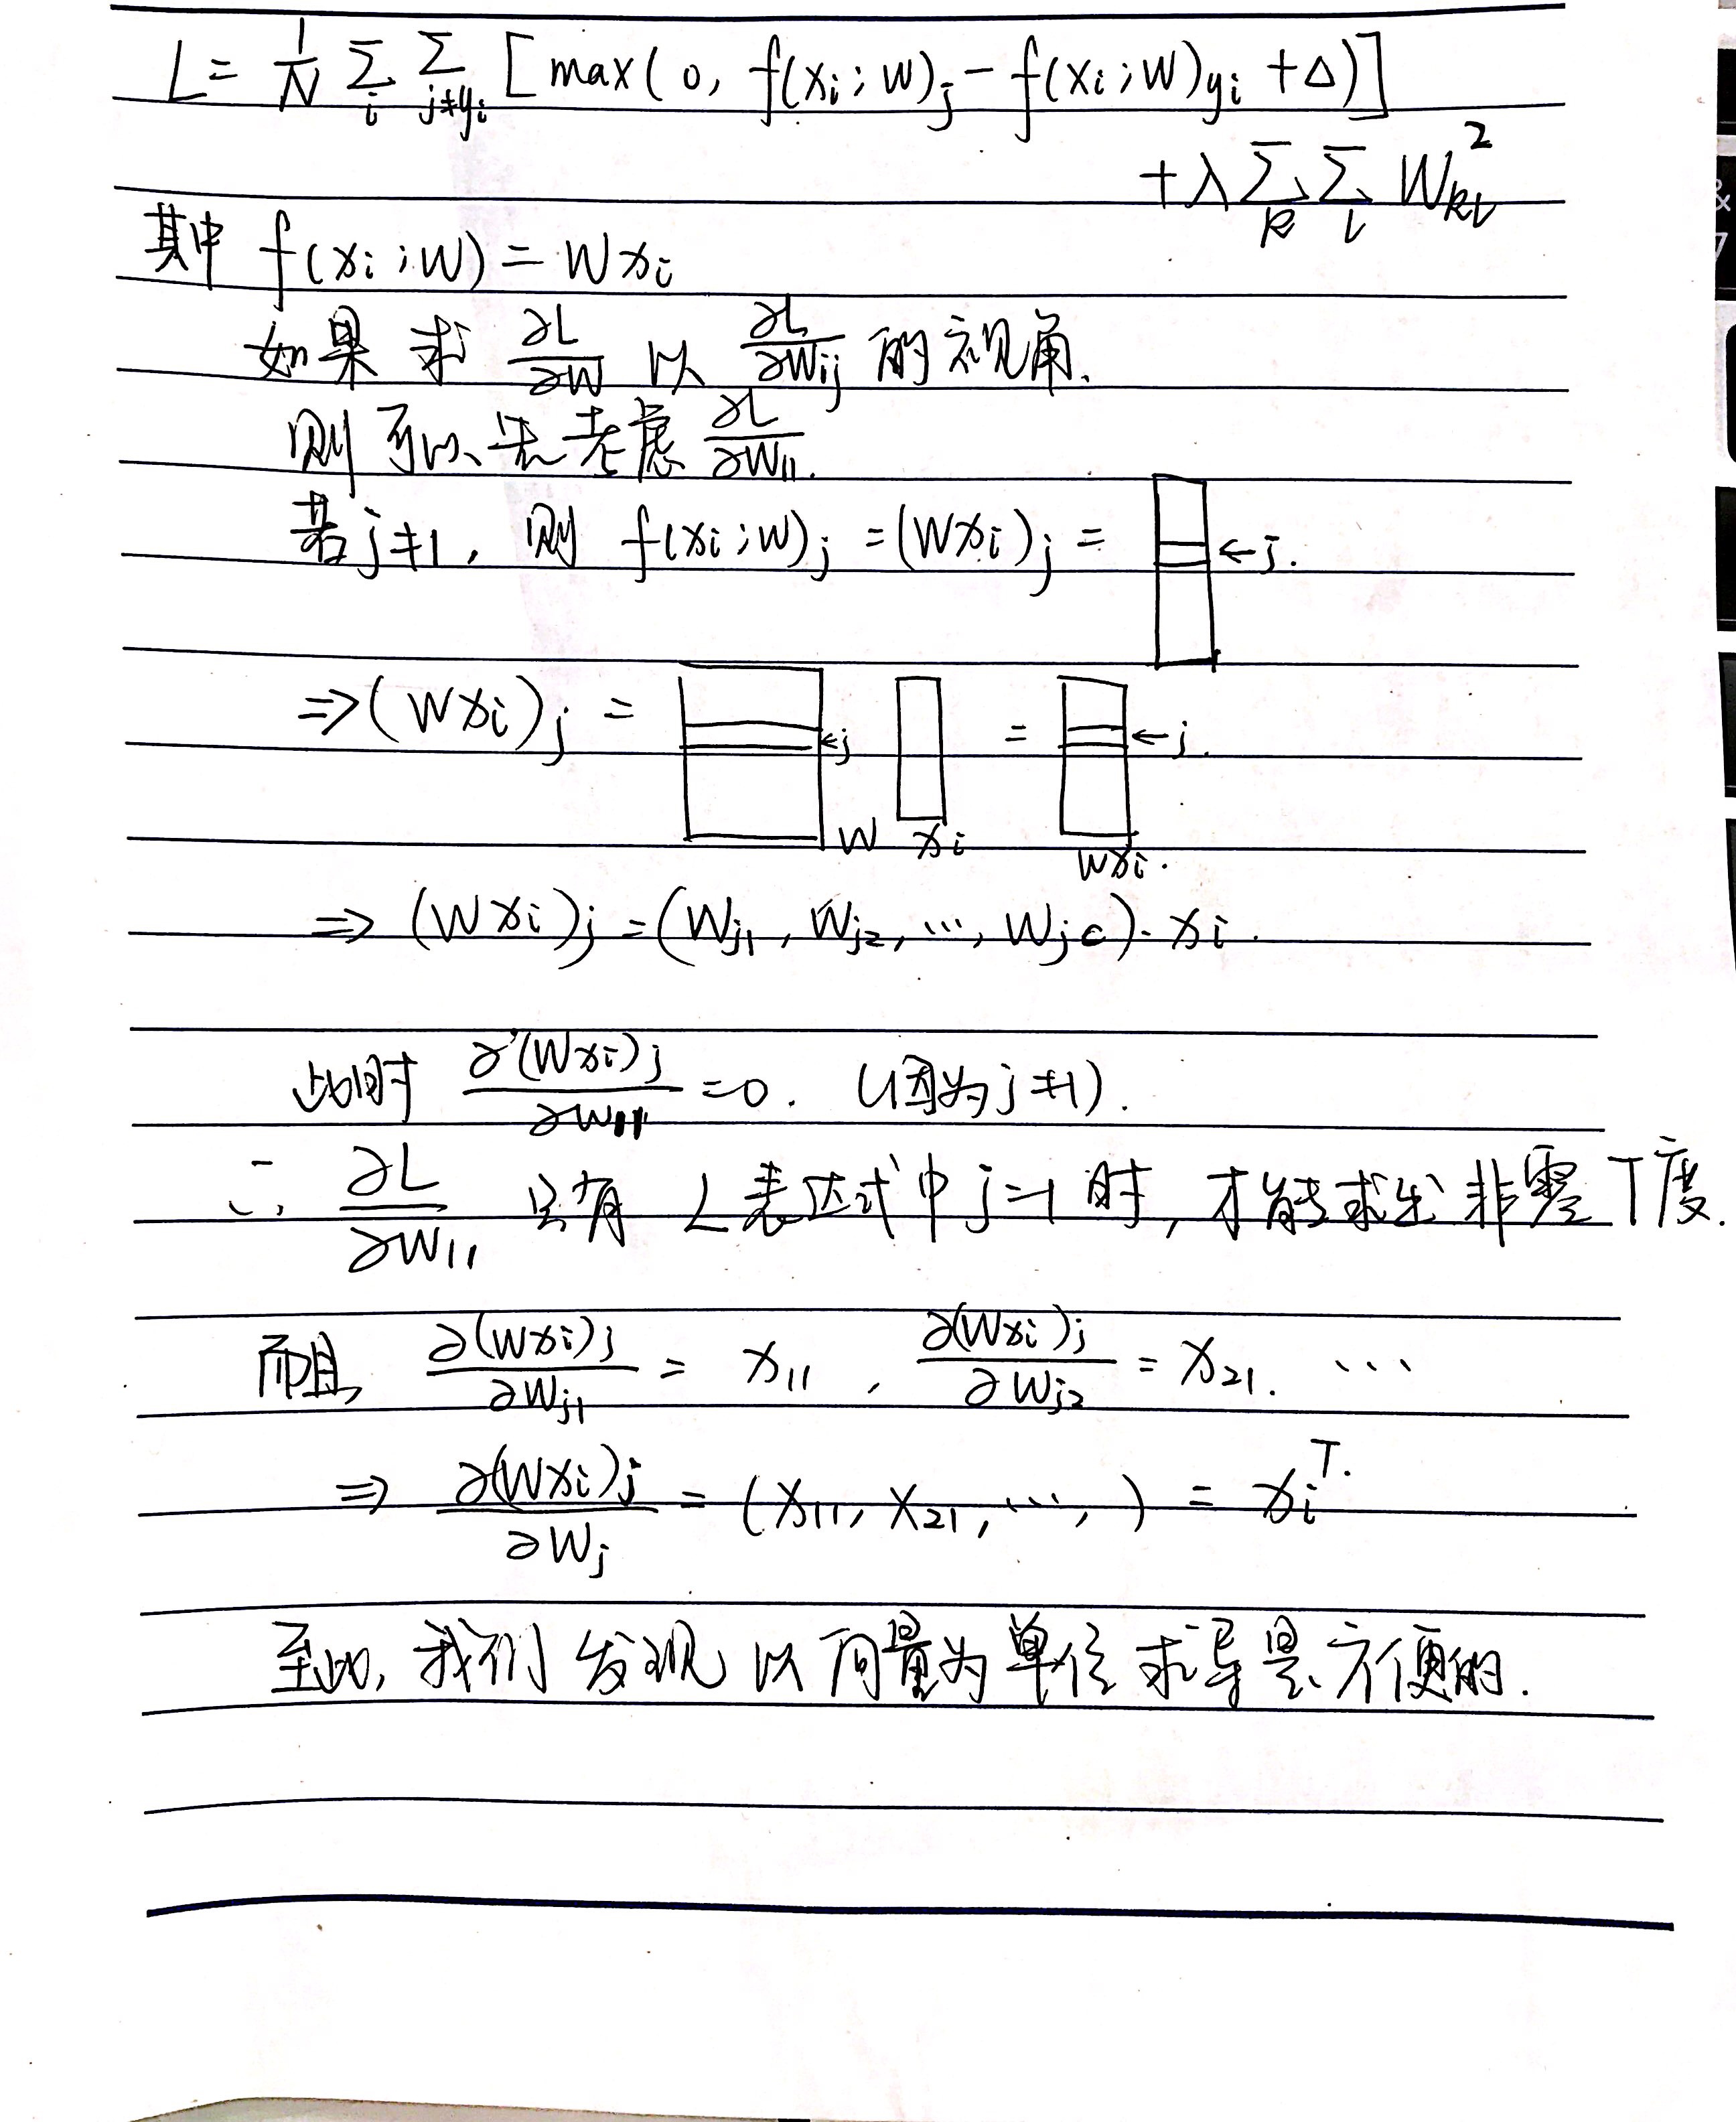 L = 1/N Σ_i Σ_{j≠y_i} [max(0, f(x_i;W)_j - f(x_i;W)y_i + Δ)]
+ λ Σ_k Σ_l W_{kl}^2
其中 f(x_i;W) = Wx_i
如果 求 ∂L/∂W 以 ∂L/∂W_{ij} 的视角.
则可以先考虑 ∂L/∂W_{11}.
若 j≠1, 则 f(x_i;W)_j = (Wx_i)_j = ←j.
⇒(Wx_i)_j = ←j = ←j.
W x_i Wx_i.
⇒ (Wx_i)_j = (W_{j1}, W_{j2}, ..., W_{jc})·x_i.
此时 ∂(Wx_i)_j/∂W_{11} = 0. (因为 j≠1).
∴ ∂L/∂W_{11} 只有 L表达式中 j=1 时, 才能求出 非零 T度.
而且, ∂(Wx_i)_j/∂W_{j1} = x_{11}, ∂(Wx_i)_j/∂W_{j2} = x_{21}. ...
⇒ ∂(Wx_i)_j/∂W_j = (x_{11}, x_{21}, ..., ) = x_i^T.
至此, 我们发现以向量为单位求导是方便的.